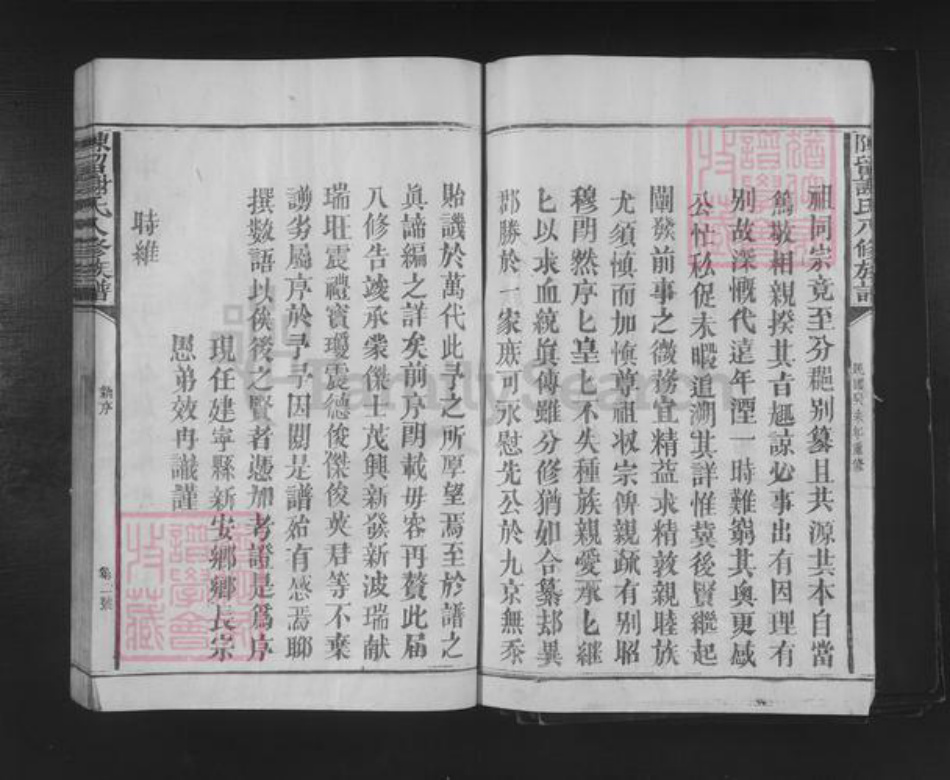 陳留謝氏八修族譜
民國癸未年重修
祖同宗竟至分𨞬別纂且共源共本自當
篤敬相親揆其旨趣諒必事出有因理有
別故深慨代遠年湮一時難窮其奧更感
公忙私促未暇追溯其詳惟冀後賢繼起
闡發前事之微務宜精益求精敦親睦族
尤須慎而加慎尊祖收宗俾親疏有別昭
穆朗然序匕皇匕不失種族親愛承匕繼
匕以求血統眞傳雖分修猶如合纂邦異
郡勝於一家庶可永慰先公於九京無忝
貽譏於萬代此予之所厚望焉至於譜之
眞諦編之詳矣前序朗載毋容再贅此屆
八修告竣承蒙傑士茂興新發新波瑞献
瑞旺震禮寶瓊震德俊傑俊英君等不棄
謭劣屬序於予予因關是譜殆有感焉聊
撰数語以俟後之賢者憑加考證是爲序
現任建寧縣新安鄉鄉長宗
愚弟效冉識謹
時維
陳留謝氏八修族譜
序
第二號
FamilySearch